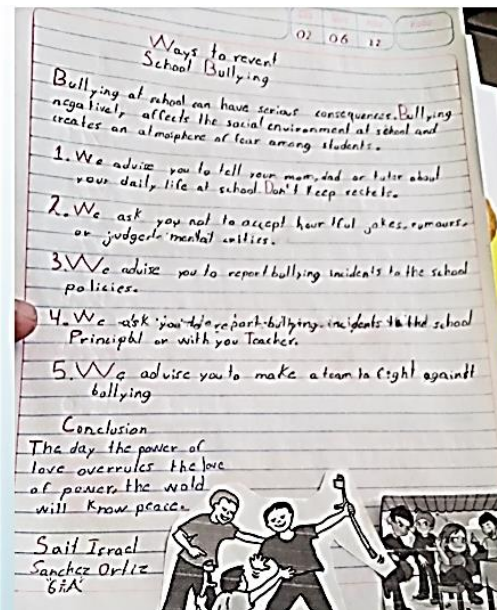 02 06 22
Ways to revent
School Bullying
Bullying at school can have serious consequences. Bullying
negatively affects the social environment at school and
creates an atmosphere of fear among students.
1. We advize you to tell your mom, dad or tutor about
your daily life at school. Don't keep secrets.
2. We ask you not to accept hour tful jokes, rumours,
or judgerd mental critics.
3. We advise you to report bullying incidents to the school
policies.
4. We ask you to report bullying incidents to the school
Principal or with you Teacher.
5. We advice you to make a team to fight against
bollying
Conclusion
The day the power of
love overrules the love
of power, the wold
will know peace.
Sait Israel
Sanchez Ortiz
"6:A"